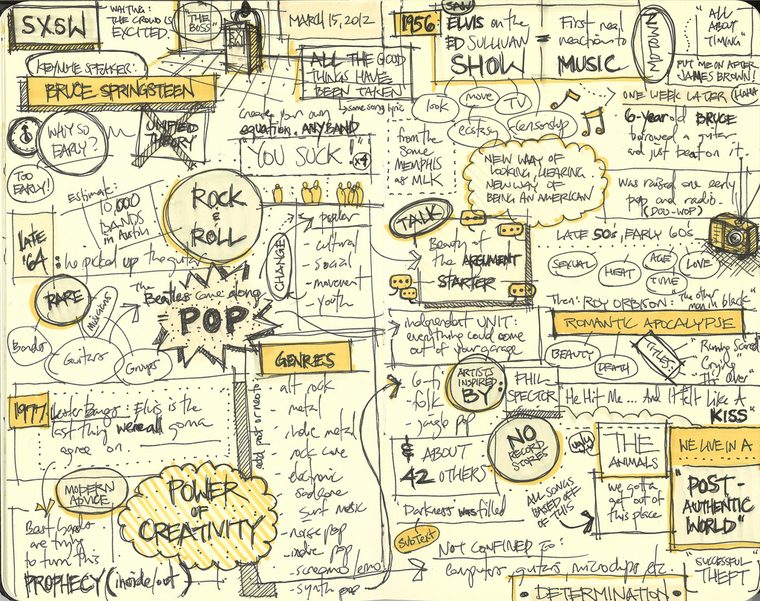 SXSW
WAITING:
THE CROWD IS
EXCITED.
"THE
BOSS"
MARCH 15, 2012
KEYNOTE SPEAKER:
BRUCE SPRINGSTEEN
"ALL THE GOOD
THINGS HAVE
BEEN TAKEN"
same song lyric
WHY SO
EARLY?
TOO
EARLY!
UNIFIED
THEORY
create your own
equation, ANY BAND
"YOU SUCK!" x4
Estimate:
10,000
BANDS
in Austin
ROCK
&
ROLL
LATE
'64
: he picked up the guitar
CHANGE
- popular
- cultural
- social
- movement
- youth
RARE
Musicians
Bands
Guitars
Groups
The
Beatles came along
POP
GENRES
add post or neo to:
- alt rock
- metal
- indie metal
- rock core
- electronic
- surf music
- noise pop
- indie pop
- screamo/emo
- synth pop
1977
Lester Bangs: Elvis is the
last thing we're all gonna
agree on.
MODERN
ADVICE
Best bands
are trying
to turn this
PROPHECY (inside/out)
POWER
OF
CREATIVITY
1956
SAW
ELVIS on the
ED SULLIVAN
SHOW
=
First real
reactions to
MUSIC
"ALL
ABOUT
TIMING"
PUT ME ON AFTER
JAMES BROWN!
look
move
TV
ecstasy
censorship
ONE WEEK LATER
HAHA
6-year old BRUCE
borrowed a guitar
and just beat on it.
from the
same
MEMPHIS
as MLK
NEW WAY OF
LOOKING, HEARING
NEW WAY OF
BEING AN AMERICAN
Was raised on early
pop and radio.
(DOO-WOP)
TALK
Beauty of
the ARGUMENT
STARTER
LATE 50s, EARLY 60s
SEXUAL
HEAT
AGE
TIME
LOVE
Then: ROY ORBISON: "The other
man in black"
ROMANTIC APOCALYPSE
independent UNIT:
everything could come
out of your garage
BEAUTY
DEATH
TITLES:
"Running Scared
Crying
It's Over"
- folk
- jangle pop
ARTISTS
INSPIRED
BY:
PHIL
SPECTOR
He Hit Me... And it Felt Like A
KISS"
& ABOUT
42 OTHERS
NO
RECORD
STORES
only
THE
ANIMALS
"we gotta
get out of
this place
WE LIVE IN A
"POST-
AUTHENTIC
WORLD"
Darkness was filled
ALL SONGS
BASED OFF
OF THIS
SUBTEXT
NOT CONFINED TO:
computers, guitars, microchips etc.
"SUCCESSFUL
THEFT"
• DETERMINATION •